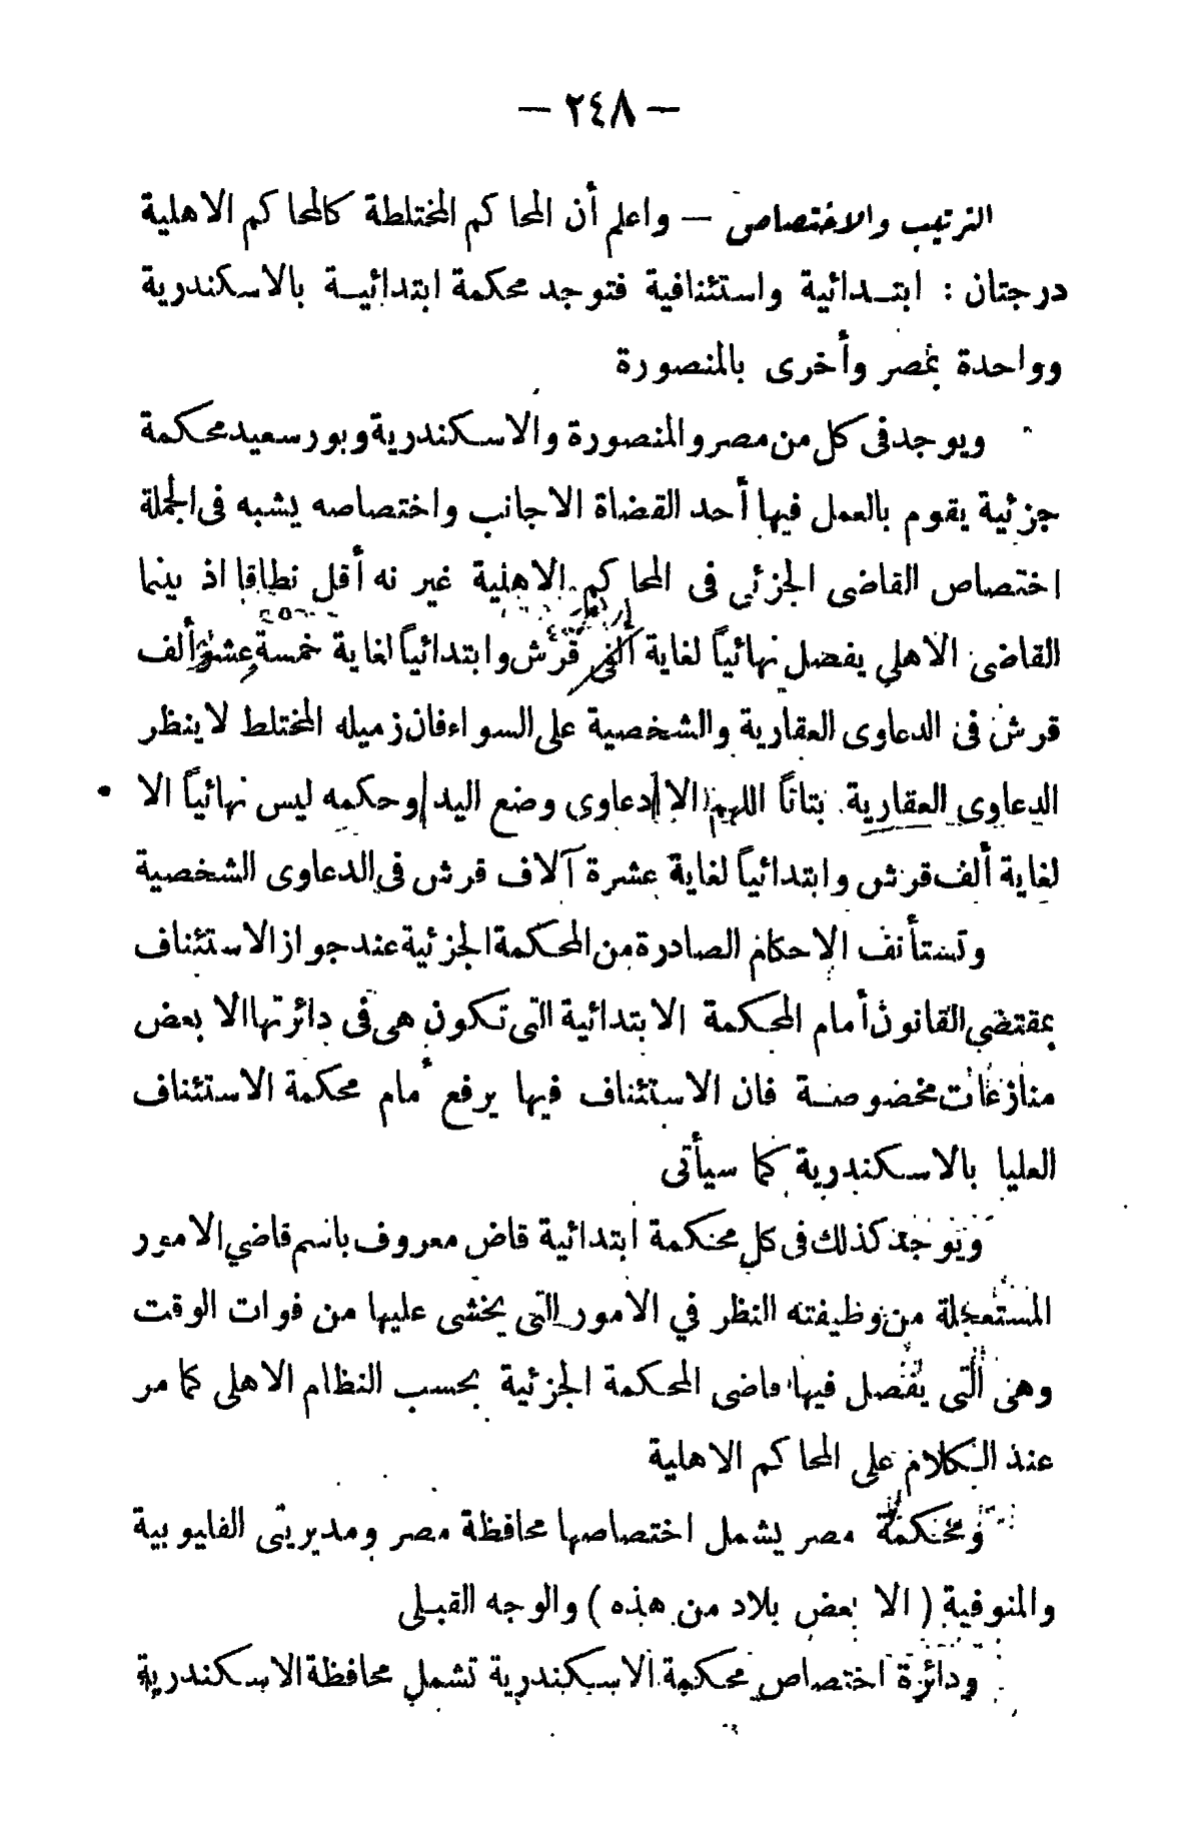 — ٢٤٨ —
الترتيب والاختصاص — واعلم أن المحاكم المختلطة كالمحاكم الاهلية
درجتان : ابتدائية واستئنافية فتوجد محكمة ابتدائية بالاسكندرية
وواحدة بمصر وأخرى بالمنصورة
ويوجد فى كل من مصر والمنصورة والاسكندرية وبور سعيد محكمة
جزئية يقوم بالعمل فيها أحد القضاة الاجانب واختصاصه يشبه فى الجملة
اختصاص القاضى الجزئي فى المحاكم الاهلية غير نه أقل نطاقا اذ بينما
القاضى الاهلي يفصل نهائياً لغاية ألفى قرش وابتدائياً لغاية خمسة عشر ألف
قرش فى الدعاوى العقارية والشخصية على السواء فان زميله المختلط لا ينظر
الدعاوى العقارية بتاتاً اللهم الا دعاوى وضع اليد وحكمه ليس نهائياً الا
لغاية ألف قرش وابتدائياً لغاية عشرة آلاف قرش فى الدعاوى الشخصية
وتستأنف الاحكام الصادرة من المحكمة الجزئية عند جواز الاستئناف
بمقتضى القانون أمام المحكمة الابتدائية التى تكون هى فى دائرتها الا بعض
منازعات مخصوصة فان الاستئناف فيها يرفع أمام محكمة الاستئناف
العليا بالاسكندرية كما سيأتى
ويوجد كذلك فى كل محكمة ابتدائية قاض معروف باسم قاضي الامور
المستعجلة من وظيفته النظر في الامور التى يخشى عليها من فوات الوقت
وهى التى يفصل فيها قاضى المحكمة الجزئية بحسب النظام الاهلى كما مر
عند الكلام على المحاكم الاهلية
ومحكمة مصر يشمل اختصاصها محافظة مصر ومديريتى القليوبية
والمنوفية ( الا بعض بلاد من هذه ) والوجه القبلى
ودائرة اختصاص محكمة الاسكندرية تشمل محافظة الاسكندرية